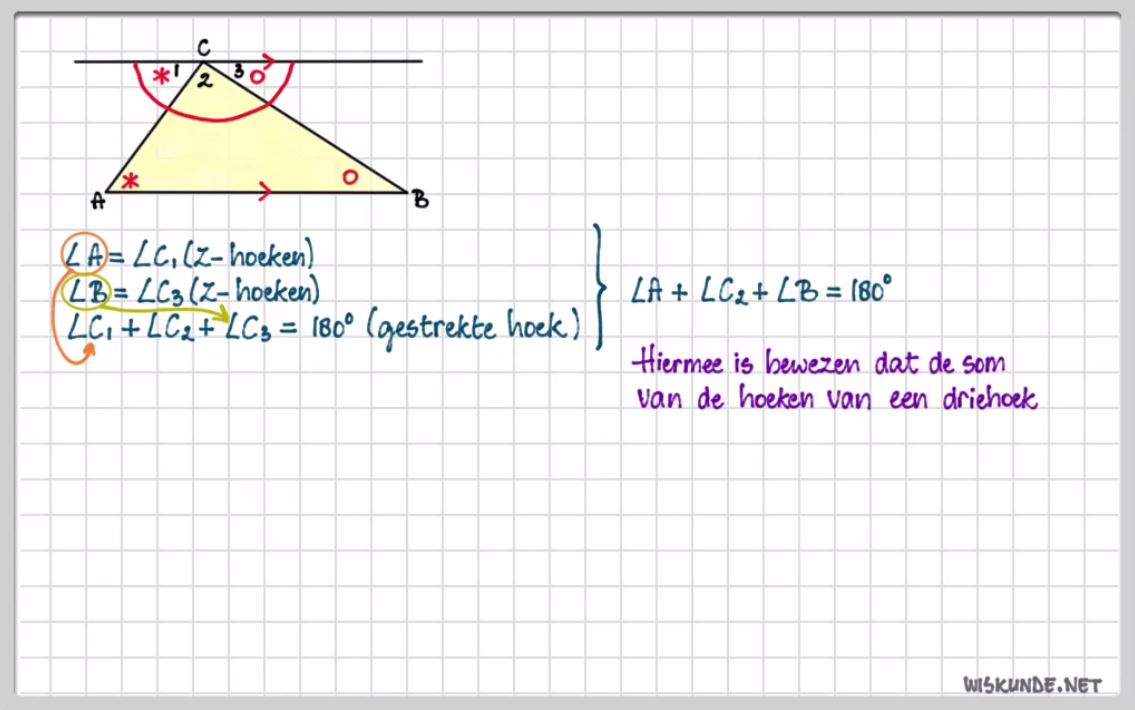 C
* 1 2 3 O
* O
A B
∠A = ∠C₁ (Z-hoeken)
∠B = ∠C₃ (Z-hoeken)
∠C₁ + ∠C₂ + ∠C₃ = 180° (gestrekte hoek)
∠A + ∠C₂ + ∠B = 180°
Hiermee is bewezen dat de som
van de hoeken van een driehoek
WISKUNDE.NET